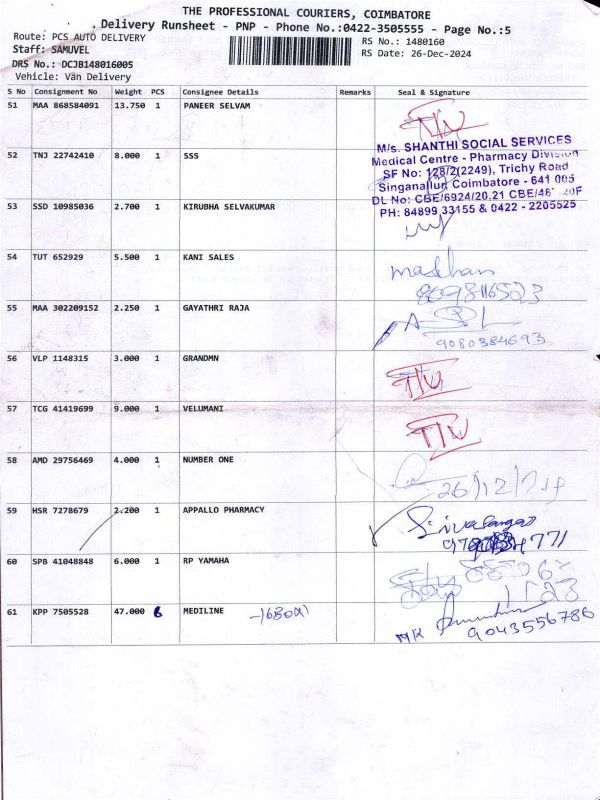 THE PROFESSIONAL COURIERS, COIMBATORE
Delivery Runsheet - PNP - Phone No.:0422-3505555 - Page No.:5
Route: PCS AUTO DELIVERY
RS No.: 1480160
Staff: SAMUVEL
RS Date: 26-Dec-2024
DRS No.: DCJB148016005
Vehicle: Van Delivery
S No Consignment No Weight PCS Consignee Details Remarks Seal & Signature
51 MAA 868584091 13.750 1 PANEER SELVAM
M/s. SHANTHI SOCIAL SERVICES
Medical Centre - Pharmacy Division
SF No: 128/2(2249), Trichy Road
Singanallur, Coimbatore - 641 005
DL No: CBE/6924/20,21 CBE/48 20F
PH: 84899 33155 & 0422 - 2205525
52 TNJ 22742410 8.000 1 SSS
53 SSD 10985036 2.700 1 KIRUBHA SELVAKUMAR
54 TUT 652929 5.500 1 KANI SALES
madhan
55 MAA 302209152 2.250 1 GAYATHRI RAJA
9080384693
56 VLP 1148315 3.000 1 GRANDMN
57 TCG 41419699 9.000 1 VELUMANI
58 AMD 29756469 4.000 1 NUMBER ONE
26/12/
59 HSR 7278679 2.200 1 APPALLO PHARMACY
60 SPB 41048848 6.000 1 RP YAMAHA
61 KPP 7505528 47.000 6 MEDILINE
9043556786